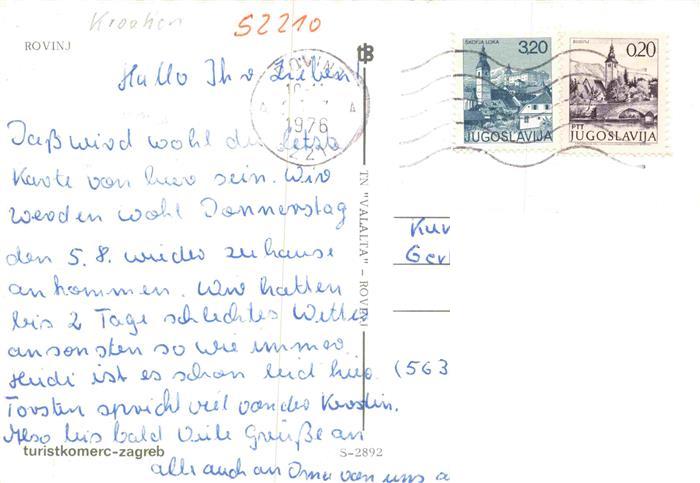 Kroatien
52210
ROVINJ
tB
ŠKOFJA LOKA
3,20
JUGOSLAVIJA
0,20
PTT
JUGOSLAVIJA
ROVINJ
1976
Hallo Ihr Lieben
Daß wird wohl die letzte
Karte von hier sein. Wir
werden wohl Donnerstag
den 5.8. wieder zu hause
ankommen. Wir hatten
bis 2 Tage schlechtes Wetter
ansonsten so wie immer
Heidi ist es schon leid hier
Torsten spricht viel von der Kerstin.
Also bis bald Viele Grüße an
alle auch an Oma von uns a
TN "VALALTA" - ROVINJ
(563
turistkomerc-zagreb
S-2892